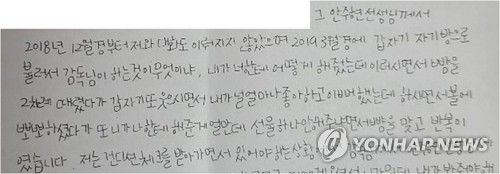 그 안주현 선생님께서
2018년 12월경부터 저와 대화도 이뤄지지 않았으며 2019 3월경에 갑자기 자기방으로
불러서 감독님이 하는것이 무엇이냐, 내가 너한테 어떻게 해줬는데 이러시면서 뺨을
2차례 때렸다가 갑자기 또 웃으시면서 내가 널 얼마나 좋아하고 이뻐했는데 하시면서 볼에
뽀뽀하셨다가 또 니가 나한테 해준게 얼만데 선물하나 안해주냐면서 뺨을 맞고 반복이
였습니다. 저는 컨디션체크를 받아가면서 있어야하는상황
YONHAP NEWS